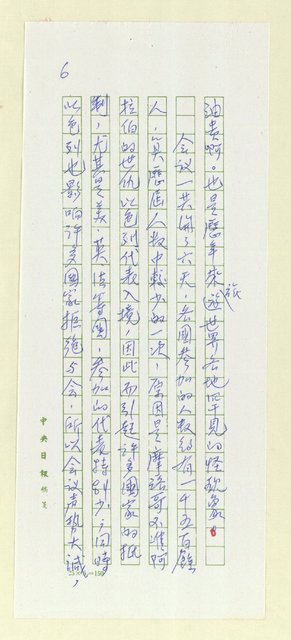 油费啊。也是歷年來旅遊世界各地罕見的怪現象。
会议一共開了六天,各國參加的人数約有一千五百餘
人,是歷屆人数中較少的一次,原因是摩洛哥不准阿
拉伯的世仇以色列代表入境,因此而引起许多國家的抵
制,尤其是美、英、法等國,參加的代表特别少,同時
以色列也影响许多國家拒絕与会,所以会议声势大減,
6
中央日報稿箋